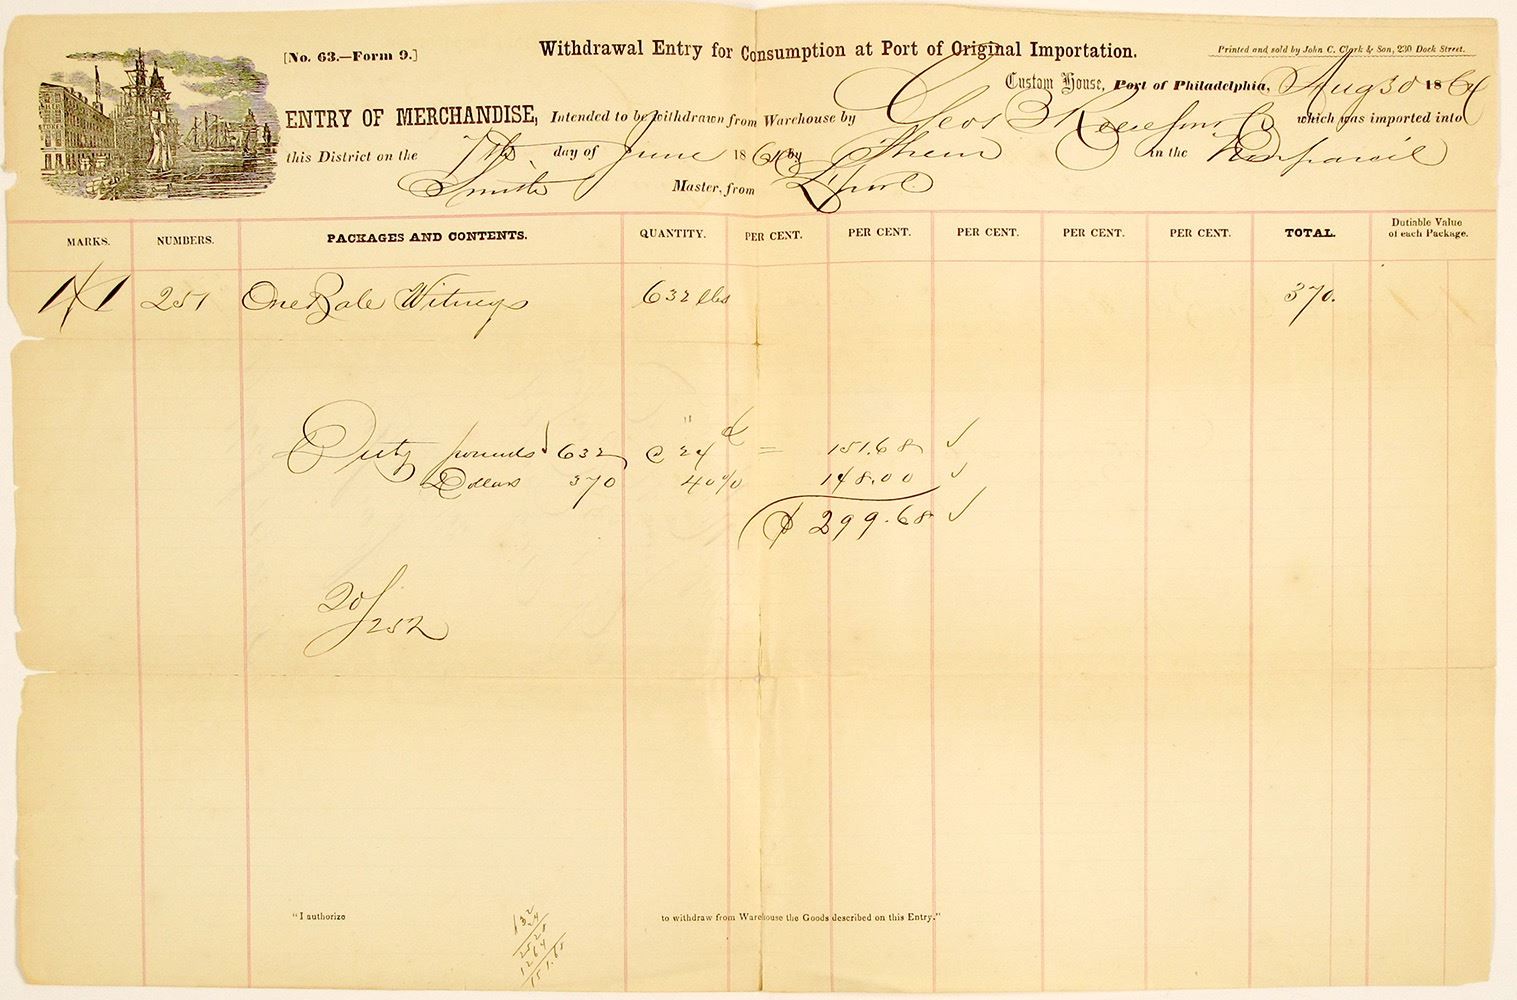 [No. 63.—Form 9.]
Withdrawal Entry for Consumption at Port of Original Importation.
Printed and sold by John C. Clark & Son, 230 Dock Street.
Custom House, Port of Philadelphia, Aug 30 1864
ENTRY OF MERCHANDISE, Intended to be withdrawn from Warehouse by Geo B Reese Son & Co which was imported into
this District on the 7th day of June 1864 by Them in the
Smith Master, from L'pool
MARKS. NUMBERS. PACKAGES AND CONTENTS. QUANTITY. PER CENT. PER CENT. PER CENT. PER CENT. PER CENT. TOTAL. Dutiable Value of each Package.
251 One Bale Witneys 632 lbs 370.
Duty pounds 632 @ 24 = 151.68 ✓
Dollars 370 40% 148.00 ✓
$ 299.68 ✓
20/252
"I authorize to withdraw from Warehouse the Goods described on this Entry."
632
24
2528
1264
151.68